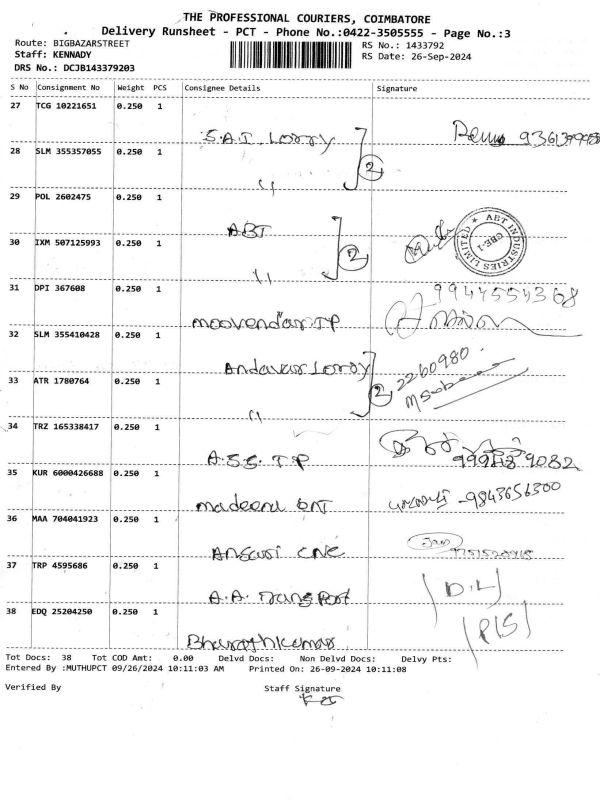 THE PROFESSIONAL COURIERS, COIMBATORE
Delivery Runsheet - PCT - Phone No.:0422-3505555 - Page No.:3
Route: BIGBAZARSTREET
RS No.: 1433792
Staff: KENNADY
RS Date: 26-Sep-2024
DRS No.: DCJB143379203
S No Consignment No Weight PCS Consignee Details Signature
27 TCG 10221651 0.250 1
S.A.I Lorry
28 SLM 355357055 0.250 1
2
29 POL 2602475 0.250 1
ABT
ABT INDUSTRIES LIMITED
CBE-1
30 IXM 507125993 0.250 1
2
31 DPI 367608 0.250 1
9944554368
moovendar TP
32 SLM 355410428 0.250 1
Andavar Lorry
2260980
33 ATR 1780764 0.250 1
2
34 TRZ 165338417 0.250 1
A.S.S. T P
35 KUR 6000426688 0.250 1
madeena
-9843656300
36 MAA 704041923 0.250 1
Ansari CNC
37 TRP 4595686 0.250 1
D.L
A.A. Transport
38 EDQ 25204250 0.250 1
P/S
Bharathkumar
Tot Docs: 38 Tot COD Amt: 0.00 Delvd Docs: Non Delvd Docs: Delvy Pts:
Entered By :MUTHUPCT 09/26/2024 10:11:03 AM Printed On: 26-09-2024 10:11:08
Verified By Staff Signature